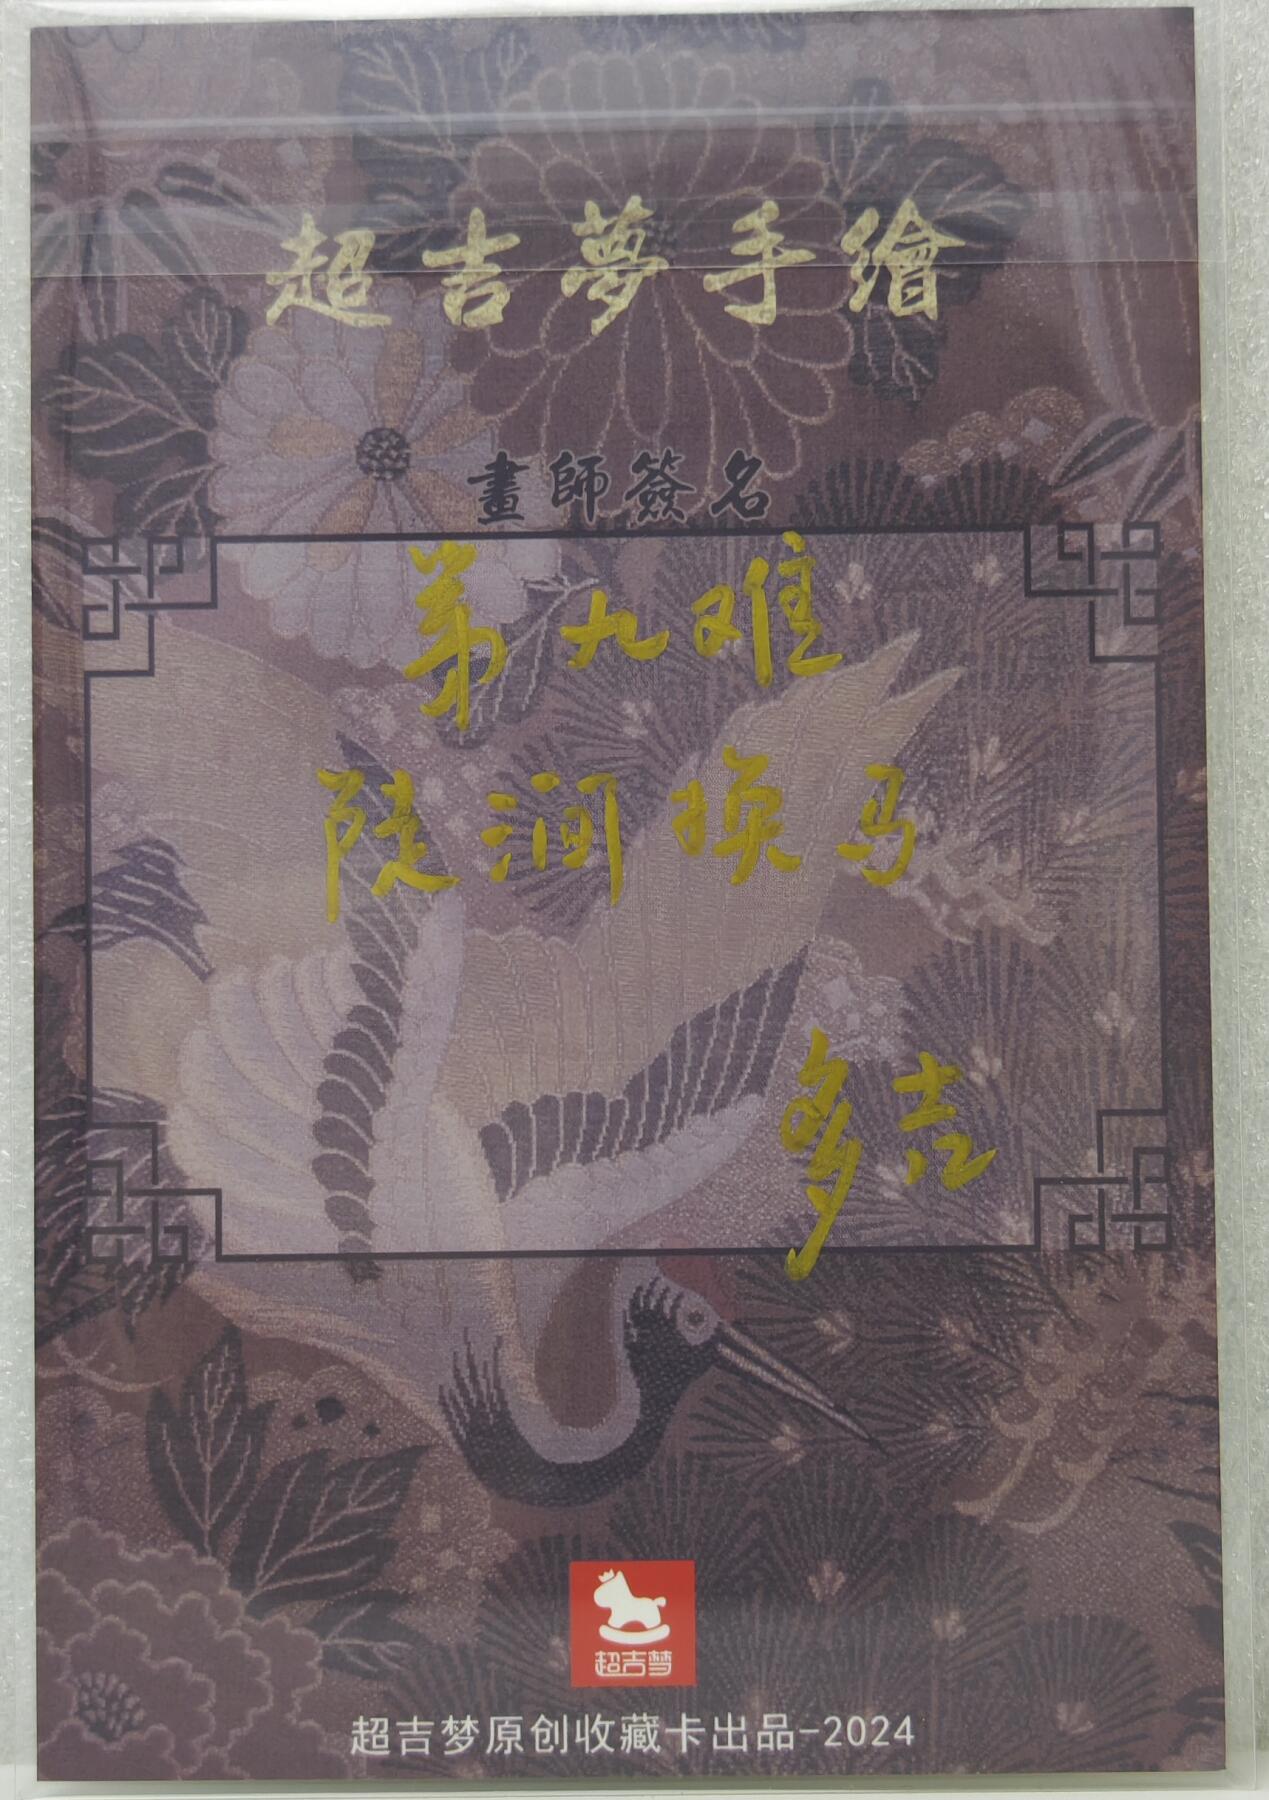 超吉夢手繪
畫師簽名
第九难
陡涧换马
多吉
超吉梦
超吉梦原创收藏卡出品-2024